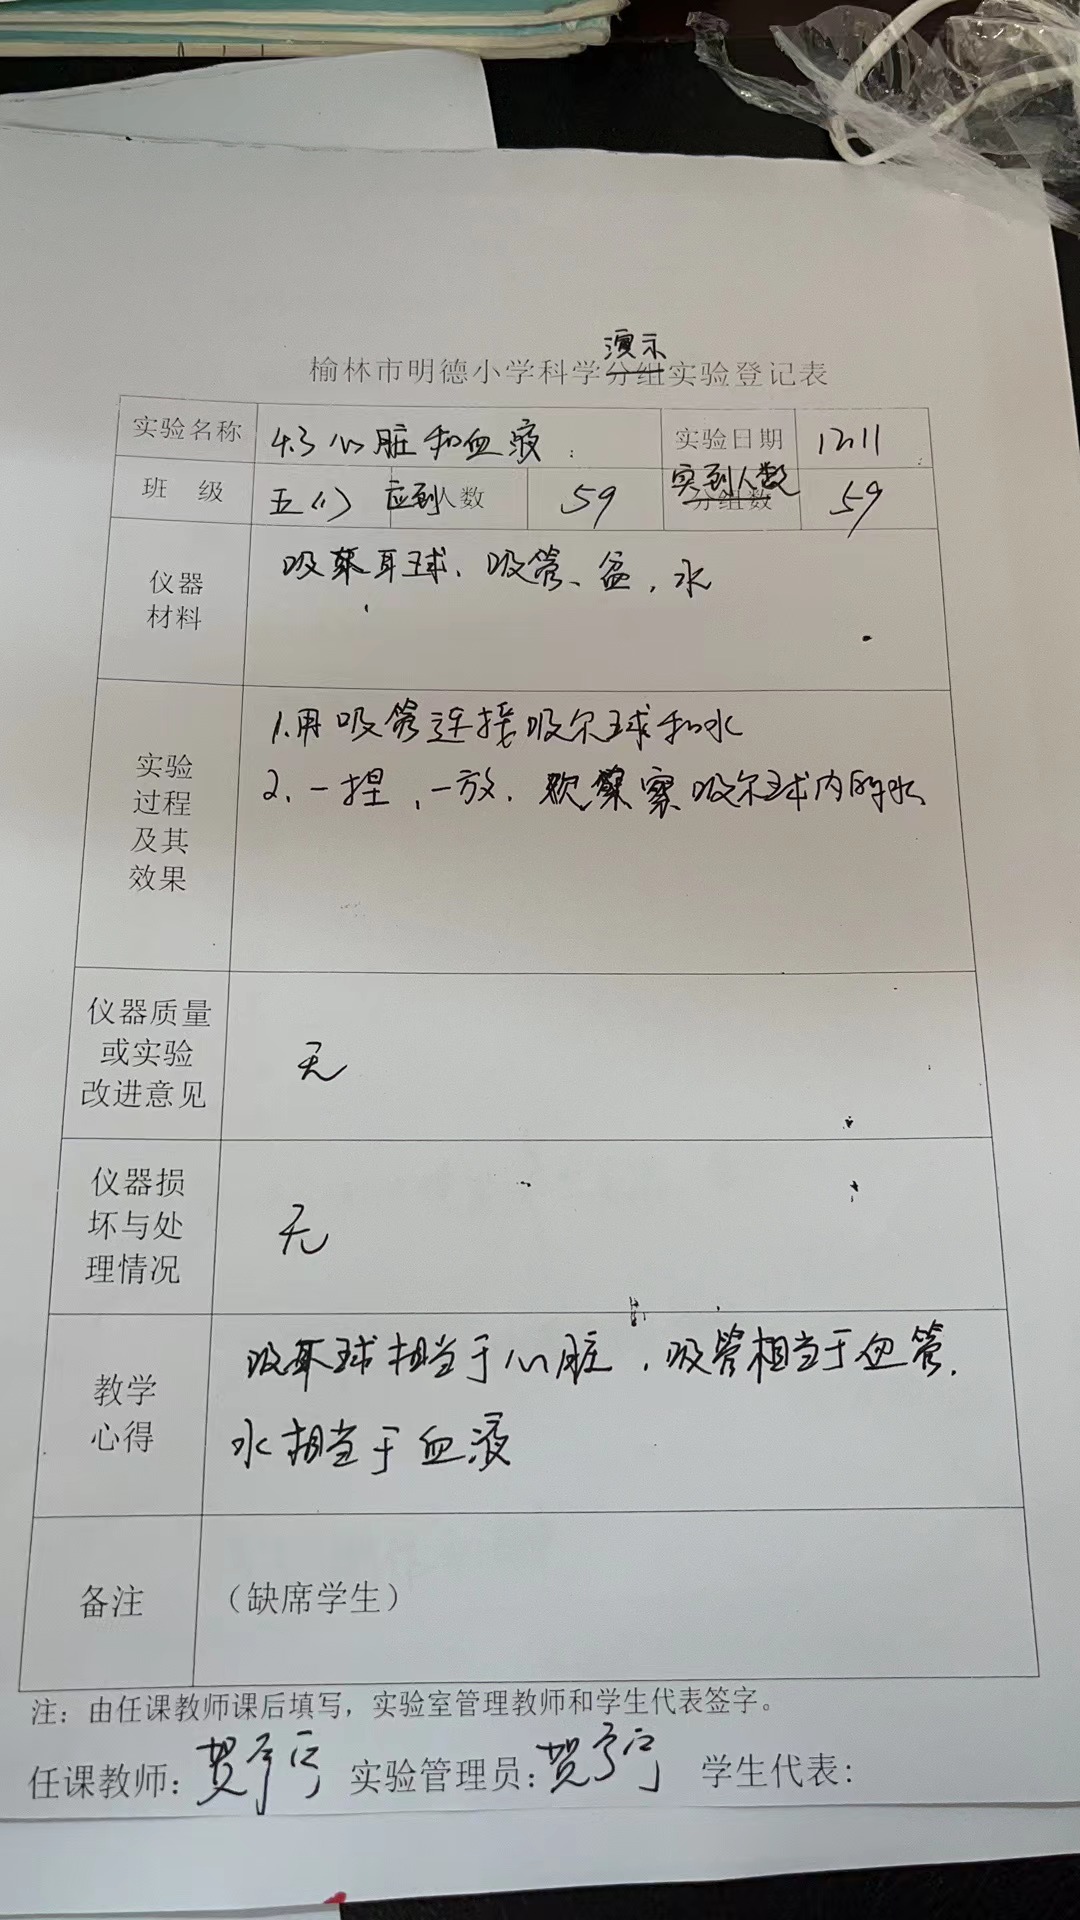 演示
榆林市明德小学科学分组实验登记表
实验名称 4.3心脏和血液 实验日期 12.11
班 级 五(1) 应到人数 59 实到人数 分组数 59
仪器材料 吸耳球、吸管、盆、水
实验过程及其效果
1.用吸管连接吸尔球和水
2、一捏、一放、观察吸尔球内的水
仪器质量或实验改进意见 无
仪器损坏与处理情况 无
教学心得 吸耳球相当于心脏，吸管相当于血管，
水相当于血液
备注 （缺席学生）
注：由任课教师课后填写，实验室管理教师和学生代表签字。
任课教师： 贺 实验管理员： 贺 学生代表：